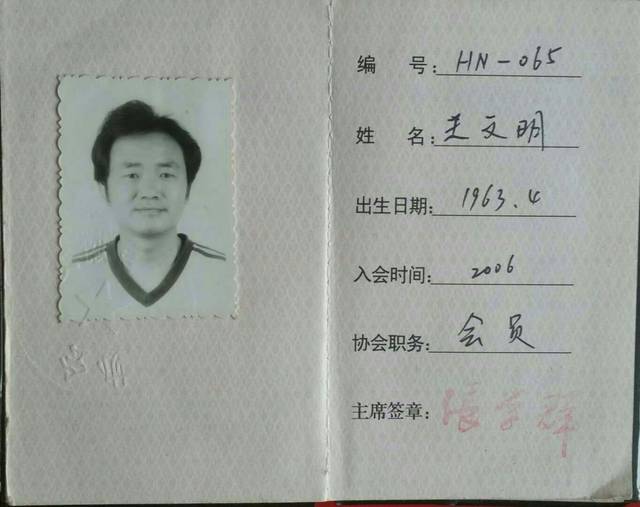 编 号: HN-065
姓 名: 文明
出生日期: 1963.4
入会时间: 2006
协会职务: 会员
主席签章: 张学群